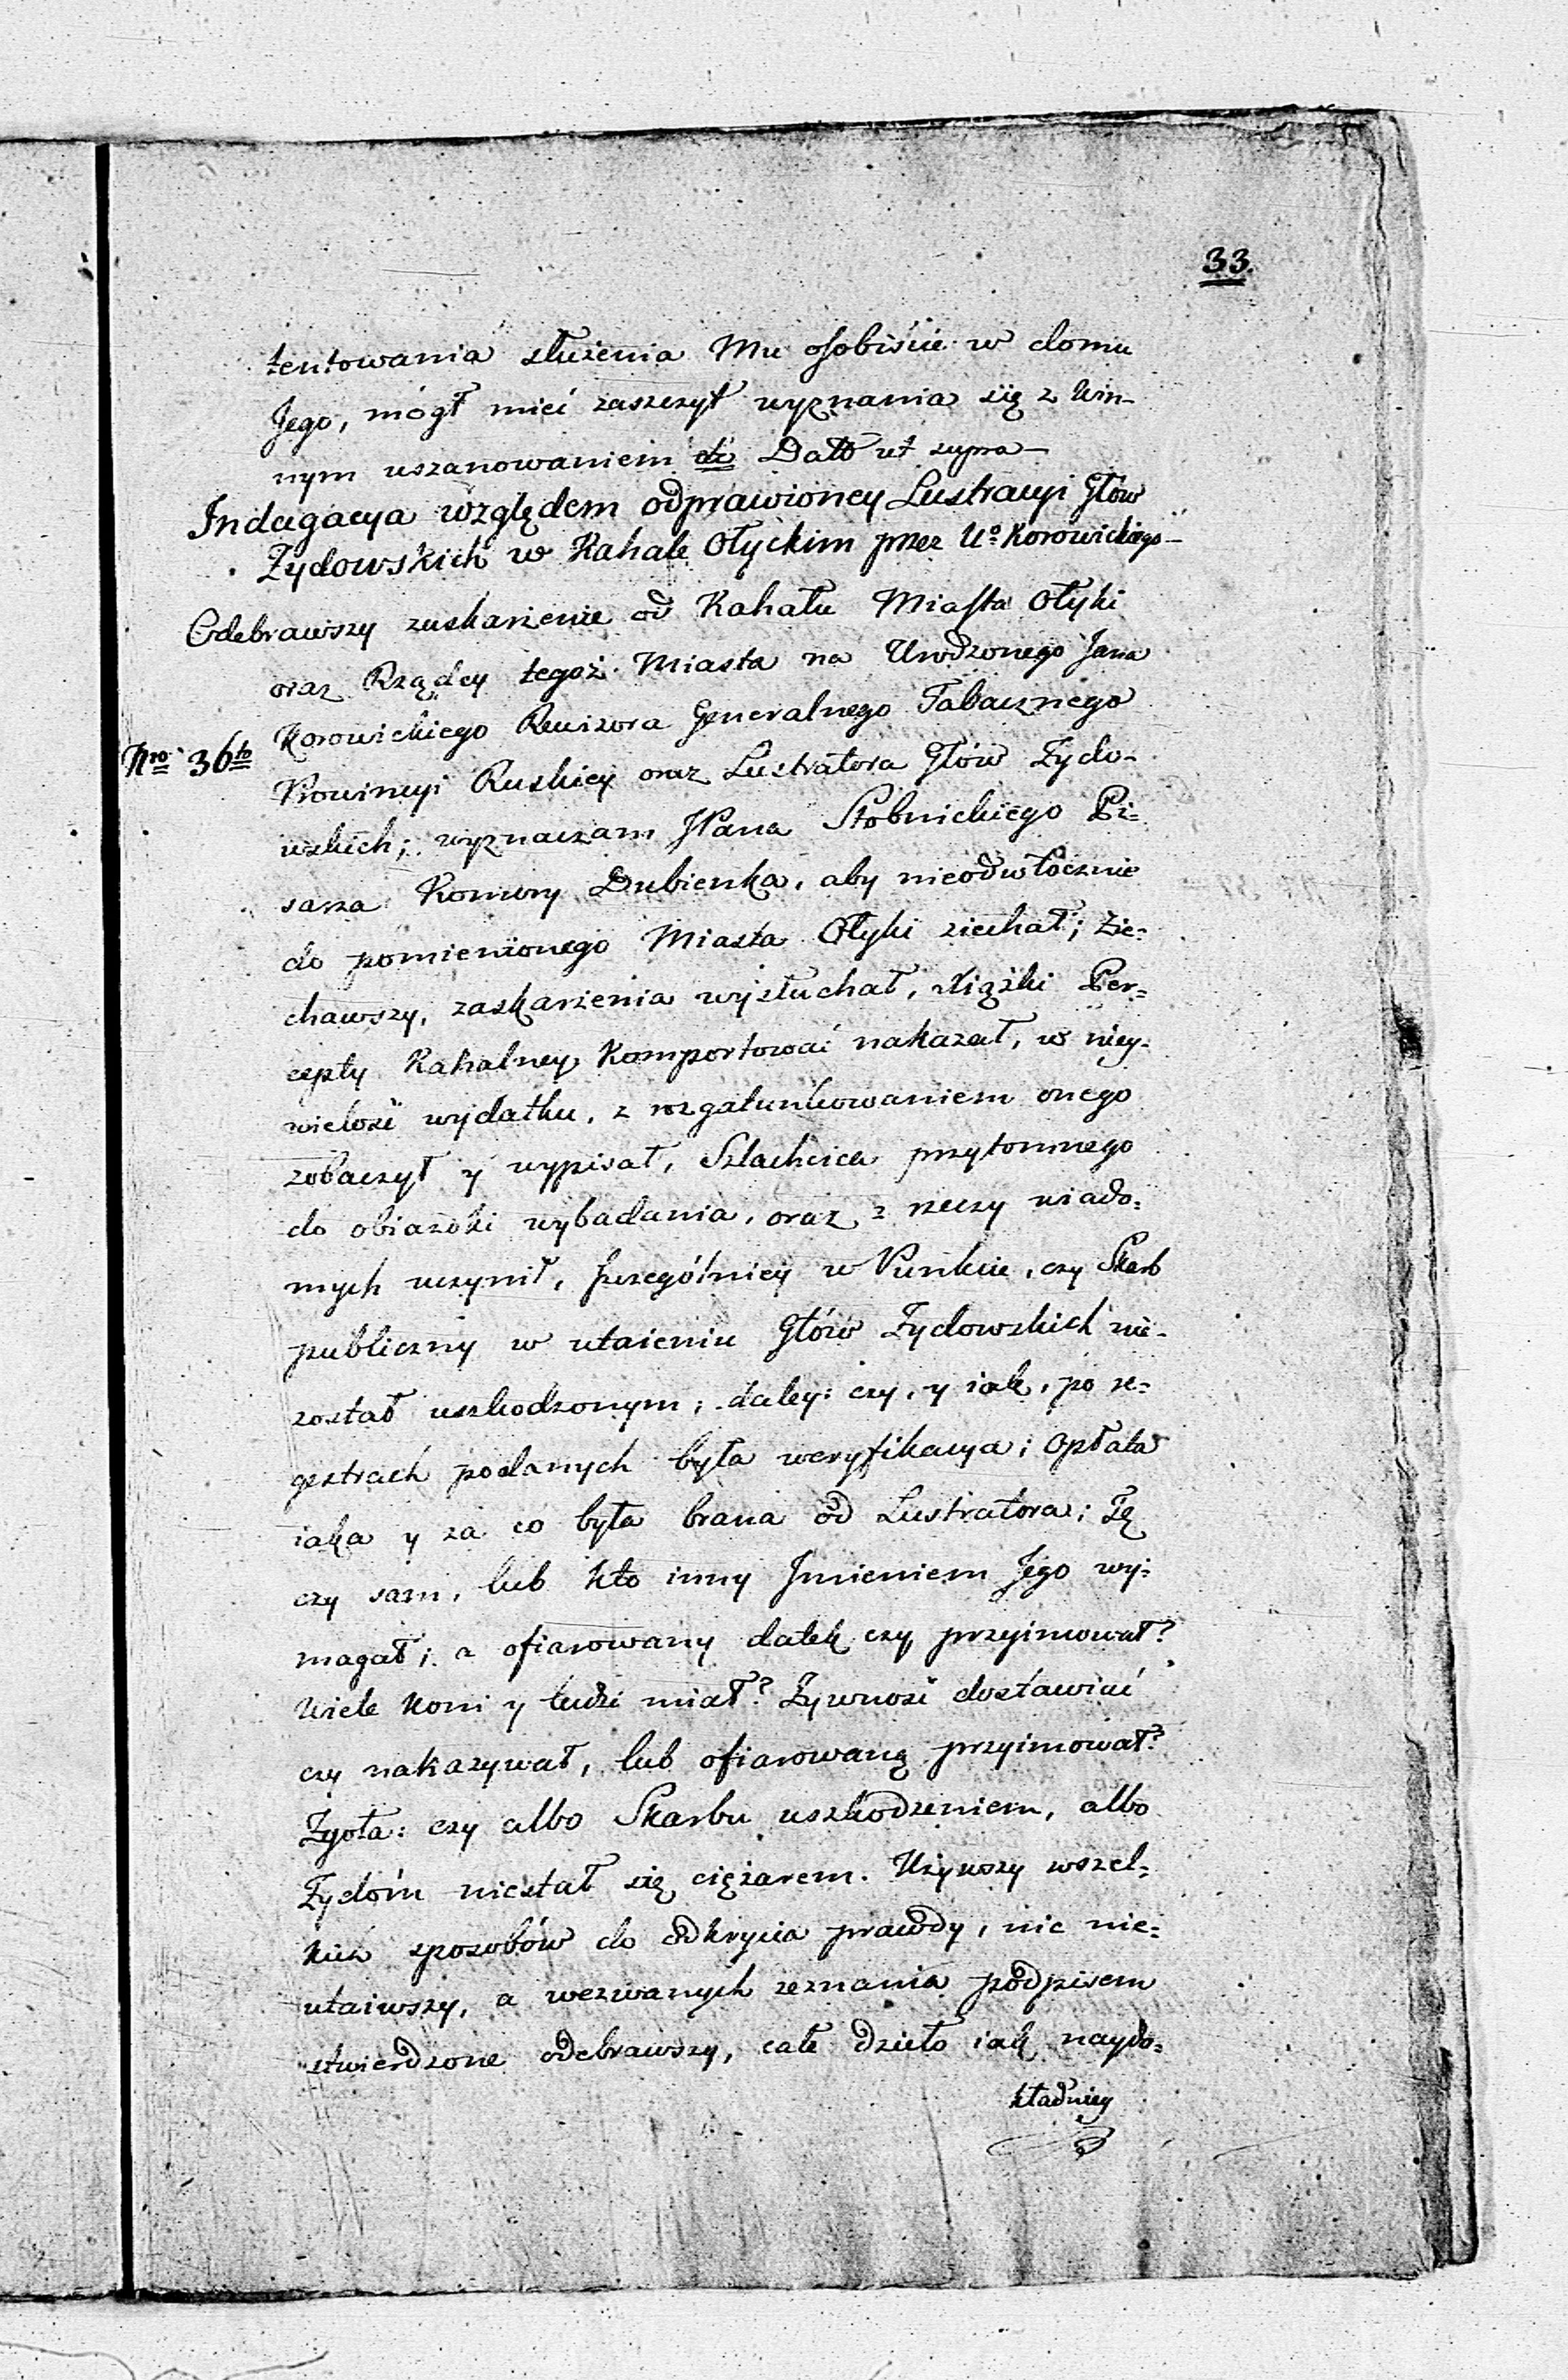 33.
tentowania służenia Mu osobiście w domu
Jego, mógł mieć zaszczyt wyznania się z win-
nym uszanowaniem &c Datō ut supra —
Indagacya względem odprawioney Lustracyi Głow
Zydowskich w Kahale Ołyckim przez Uo Korowickiego —
Odebrawszy zaskarżenie od Kahału Miasta Ołyki
oraz Rządcy tegoż Miasta na Urodzonego Jana
Korowickiego Rewizora Generalnego Tabacznego
Nro 36to
Prowincyi Ruskiey oraz Lustratora Głów Zydo-
wskich; wyznaczam JPana Stobnickiego Pi=
sarza Komory Dubienka, aby nieodwłocznie
do pomienionego Miasta Ołyki ziechał; Zie=
chawszy, zaskarżenia wysłuchał, Xiążki Per=
cepty Kahalney Komportować nakazał, w niey
wielość wydatku, z rozgatunkowaniem onego
zobaczył y wypisał, Szlachcica przytomnego
do obiazdki wybadania, oraz z rzeczy wiado=
mych uczynił, szczegółniey w Punkcie, czy Skarb
publiczny w utaieniu Głów Zydowskich nie-
został uszkodzonym; daley: czy, y iak, po re=
gestrach podanych była weryfikacya; Opłata
iaka y za co była brana od Lustratora; Tę
czy sam, lub kto inny Jmieniem Jego wy=
magał; a ofiarowany datek czy przyimował?
Wiele Koni y ludzi miał? Zywność dostawiać
czy nakazywał, lub ofiarowaną przyimował?
Zgoła: czy albo Skarbu uszkodzeniem, albo
Zydóm niestał się ciężarem. Używszy wszel=
kich sposobów do odkrycia prawdy, nic nie=
utaiwszy, a wezwanych zeznania podpisem
stwierdzone odebrawszy, całe dzieło iak naydo=
kładniey